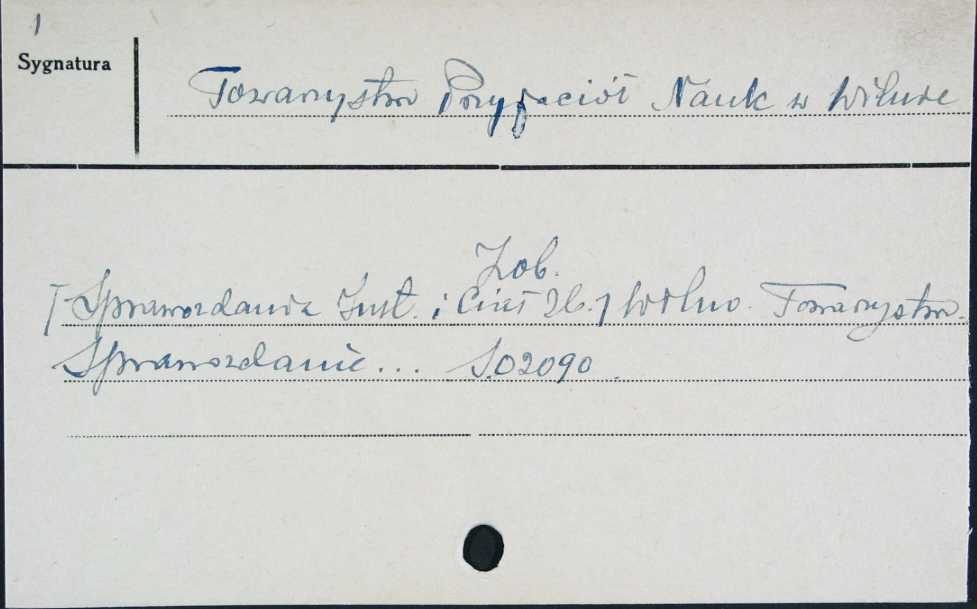 1
Sygnatura
Towarzystwo Przyjaciół Nauk w Wilnie
Zob.
[Sprawozdania Inst. i Ciał Zb.] Wilno. Towarzystwo.
Sprawozdanie... S.02090.